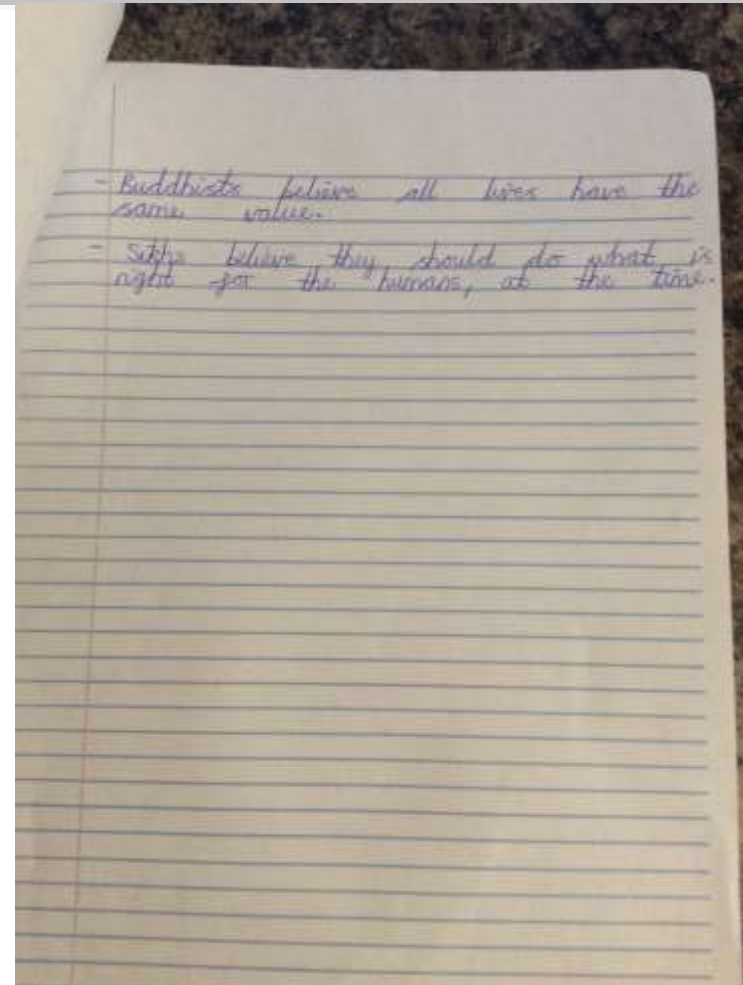 - Buddhists believe all lives have the
same value.
- Sikhs believe they should do what is
right for the humans, at the time.